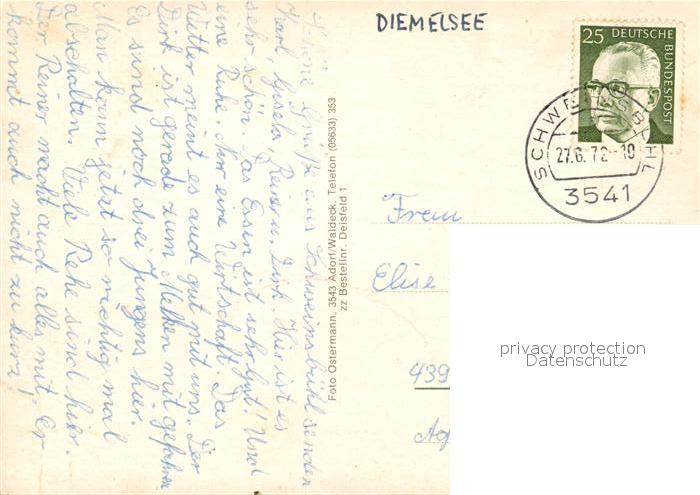 DIEMELSEE
25 DEUTSCHE BUNDESPOST
SCHWEINSBÜHL
27.6.72-18
3541
Grüße aus Schweinsbühl senden
Karl, Gisela, Reiner u. Dirk. Hier ist es
sehr schön. Das Essen ist sehr gut! Und
eine Ruhe. Nur eine Wirtschaft. Das
Wetter meint es auch gut mit uns. Der
Dirk ist gerade zum Melken mit gefahren
Es sind noch drei Jungens hier.
Man kann jetzt so richtig mal
abschalten. Viele Rehe sind hier.
Der Reiner macht auch alles mit, er
kommt auch nicht zu kurz.
Foto Ostermann, 3543 Adorf/Waldeck, Telefon (05633) 353
zz Bestellnr. Deisfeld 1
Frau
Elise
439
privacy protection
Datenschutz